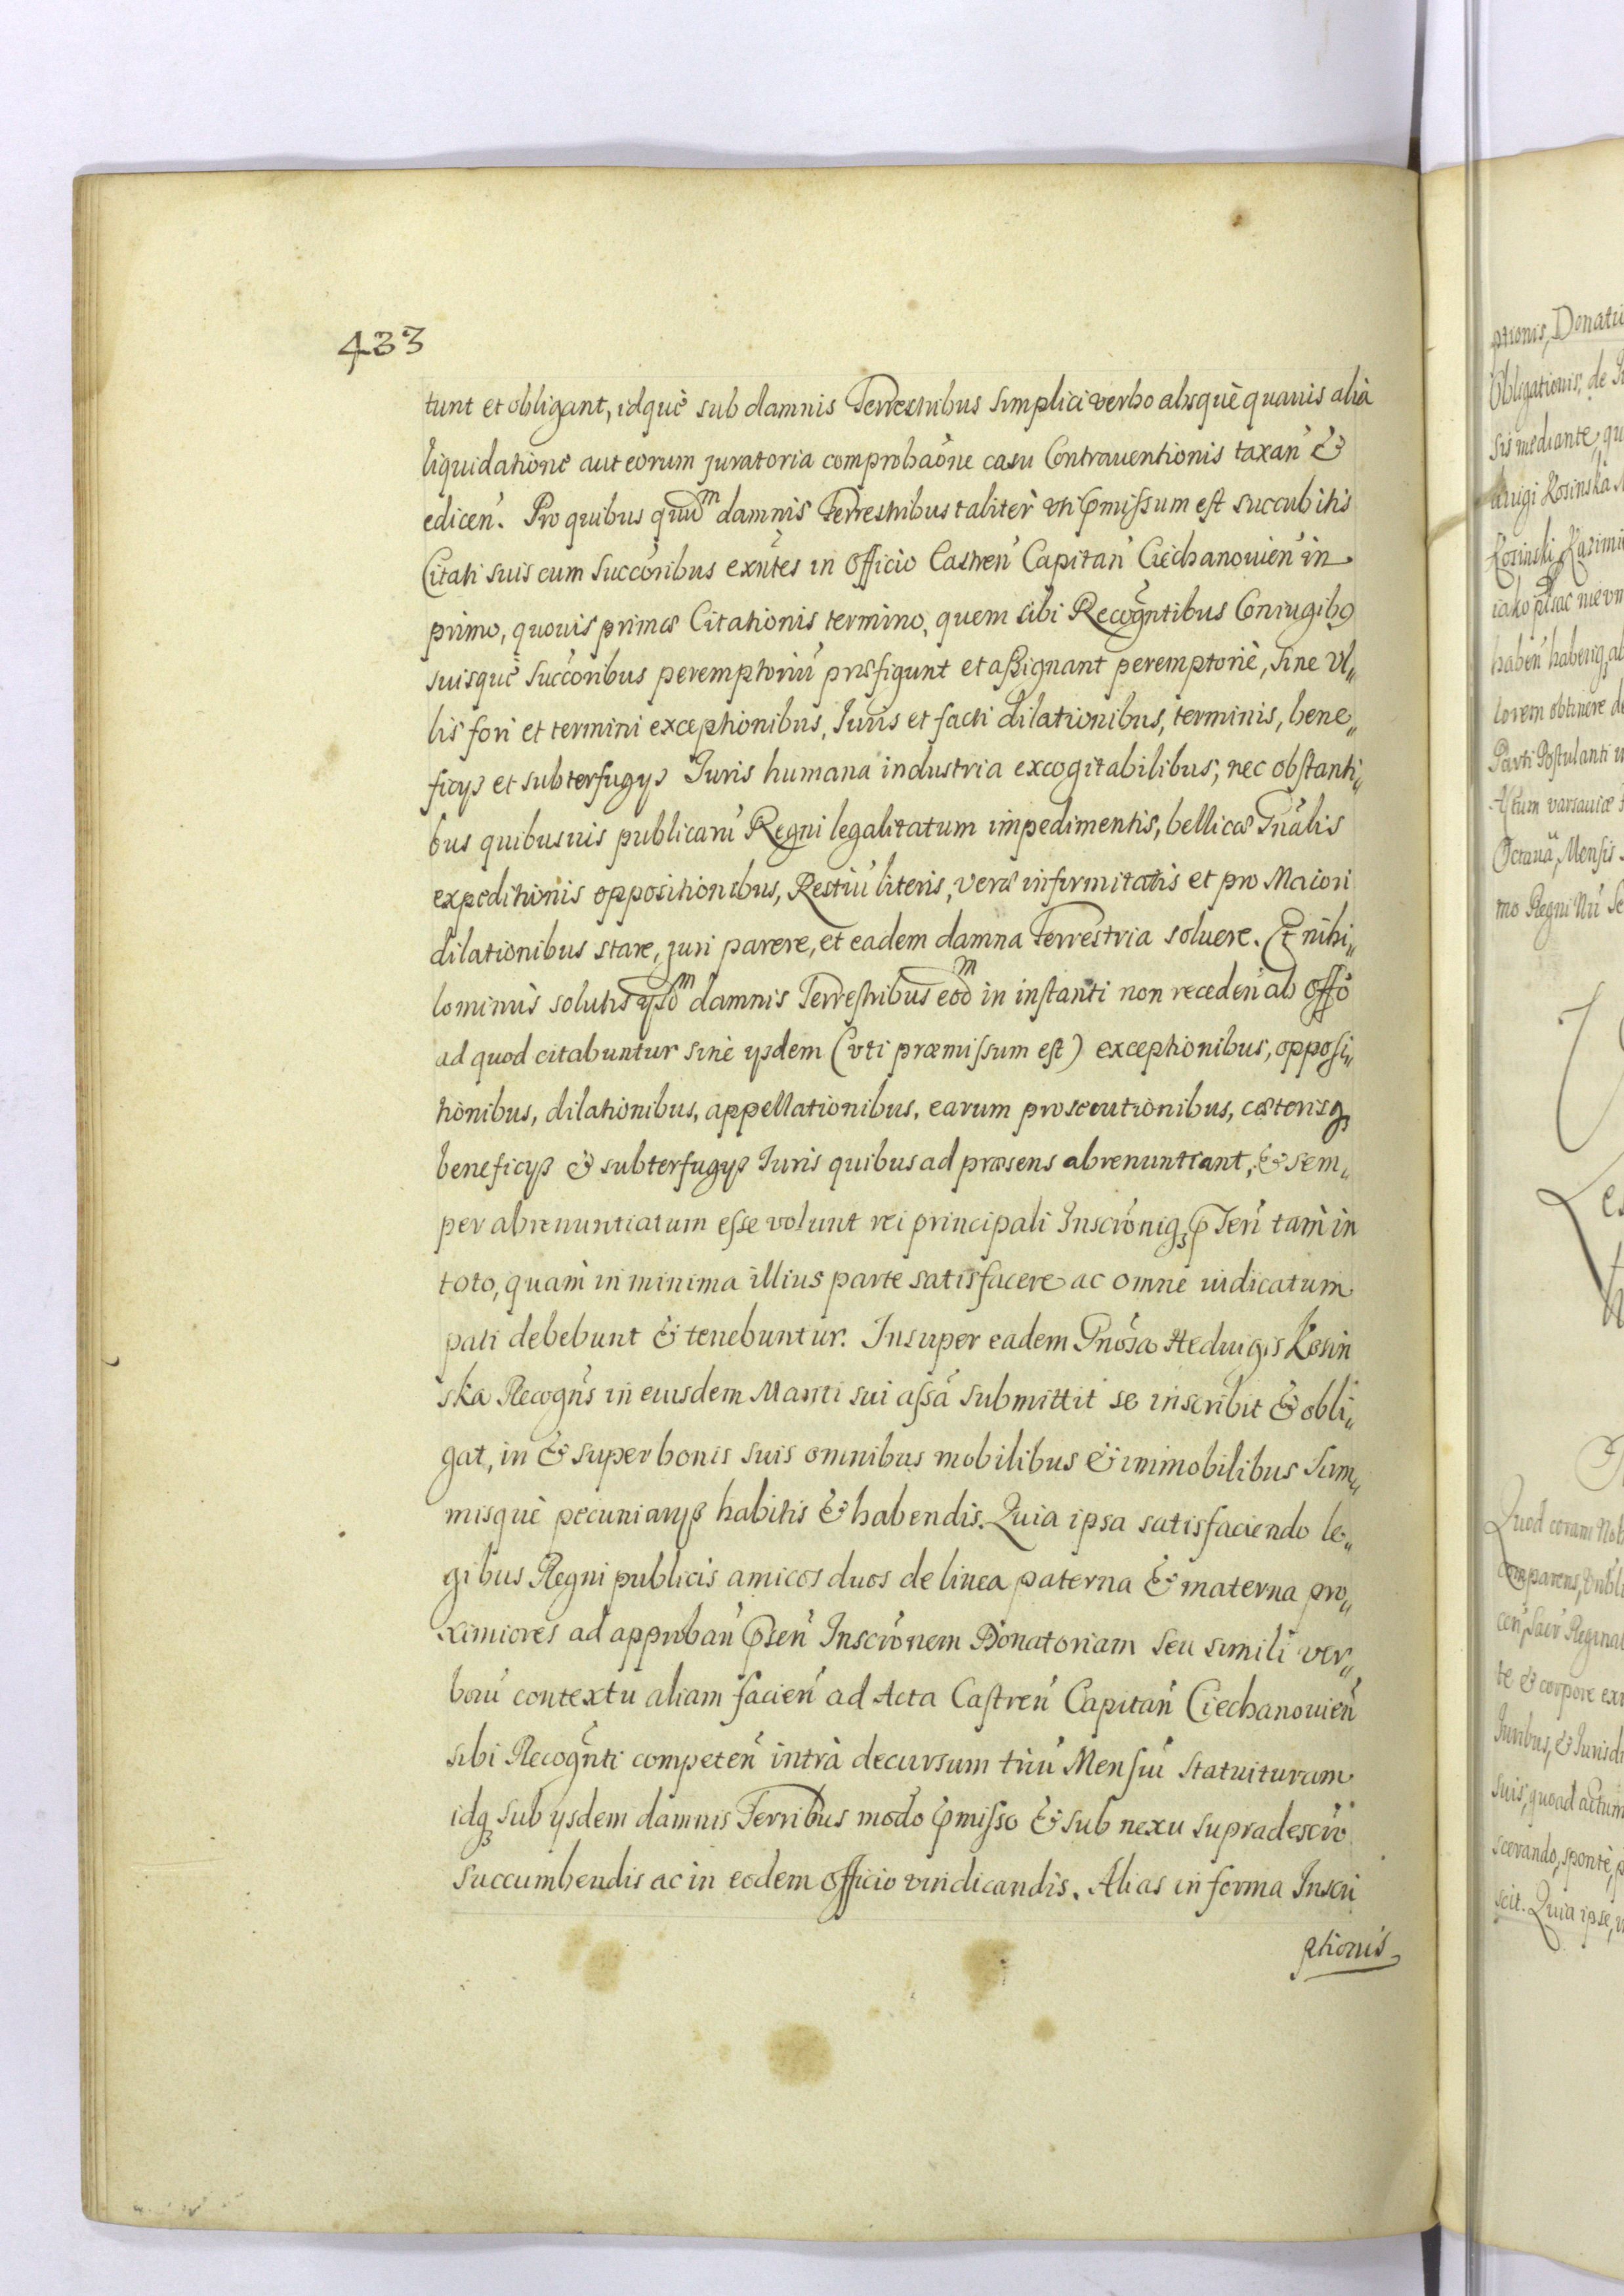 433
tunt et obligant, idquè sub damnis Terrestribus simplici verbo absquè quauis alià
liquidatione aut eorum juratoria comprobaõne casu Contrauentionis taxan̄ &
edicen̄. Pro quibus quid᷑ᵐ damnis Terrestribus taliter vti p̄missum est succubitis
Citati suis cum Succõribus exn̄tes in Officio Castren̄ Capitan̄ Ciechanouien̄ in
primo, quouis primæ Citationis termino, quem sibi Recogn̄tibus Coniugibꝯ
suisquè Succõribus peremptoriū præfigunt et assignant peremptoriè, sine Vl„
lis fori et termini exceptionibus, Iuris et facti dilationibus, terminis, bene„
ficys et subterfugys Iuris humana industria excogitabilibus, nec obstanti„
bus quibusuis publicarū Regni legalitatum impedimentis, bellicæ Gn̄alis
expeditionis oppositionibus, Restiū literis, veræ infirmitatis et pro Maiori
dilationibus stare, juri parere, et eadem damna Terrestria soluere. Et nihi„
lominùs solutis ysdᵐ damnis Terrestribus eodᵐ in instanti non receden̄ ab Offõ
ad quod citabuntur sinè ysdem (vti præmissum est) exceptionibus, opposi„
tionibus, dilationibus, appellationibus, earum prosecutionibus, cæterisqꝫ
beneficys & subterfugys Iuris quibus ad præsens abrenuntiant, & sem„
per abrenuntiatum esse volunt rei principali Inscrõniqꝫ p̄ Sen̄ tam in
toto, quam in minima illius parte satisfacere ac omne iudicatum
pati debebunt & tenebuntur. Insuper eadem Gn̄osa Heduigis Kosin
ska Recogn̄s in eiusdem Mariti sui assã submittit se inscribit & obli„
gat, in & super bonis suis omnibus mobilibus & immobilibus Sum„
misquè pecuniarys habitis & habendis. Quia ipsa satisfaciendo le„
gibus Regni publicis amicos duos de linea paterna & materna pro„
ximiores ad approban̄ p̄sen̄ Inscrõnem Donatoriam seu simili ver„
borū contextu aliam facien̄ ad Acta Castren̄ Capitan̄ Ciechanouien̄
sibi Recogn̄ti competen̄ intrà decursum triū Mensiū statuituram
idqꝫ sub ysdem damnis Terribus modo p̄misso & sub nexu supradescr̄o
succumbendis ac in eodem Officio vindicandis. Alias in forma Inscri
ptionis
ptionis, Donatio
Obligationis, de
sis mediante, qu
duigi Kosinska
Kosinski, Kazimi
haben̄ haberiqꝫ
lorem obtinere d
Parti Postulanti
Actum varsauiæ
Octauâ, Mensis
mo Regni Nri
Quod coram
comparens, publi
te & corpore
Iuribus, & Iurisdi
suis, quoad actum
scerando, sponte, p
scit. Quia ipse,